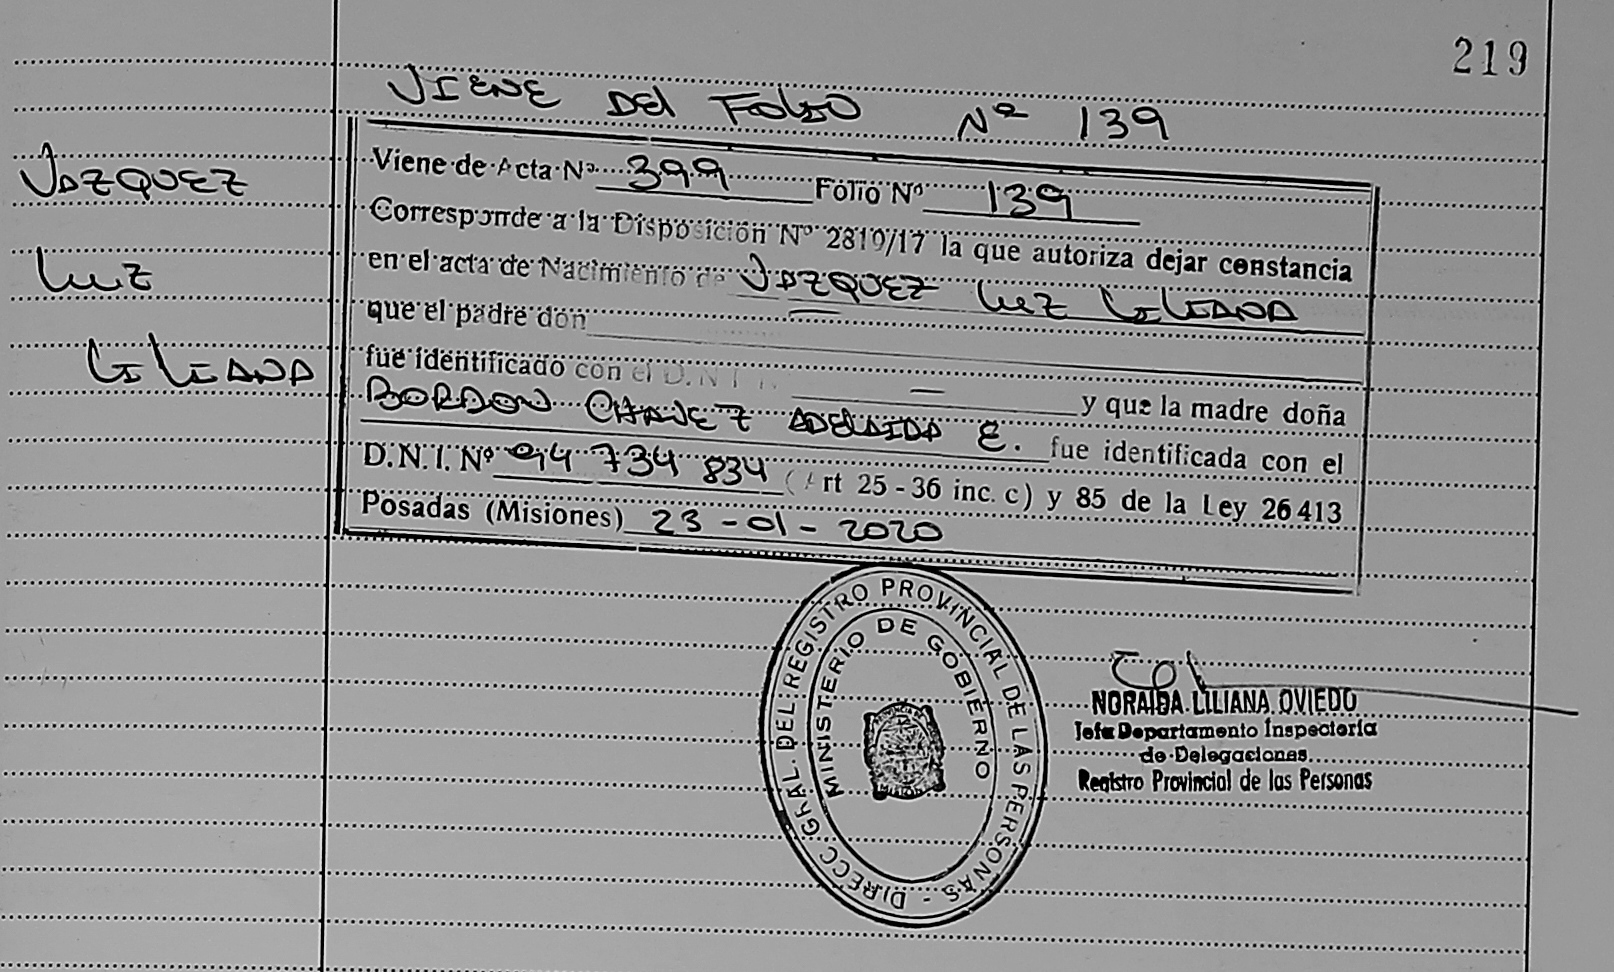 219
VIENE DEL FOLIO Nº 139
Viene de Acta Nº 399 Folio Nº 139
Corresponde a la Disposición Nº 2810/17 la que autoriza dejar constancia
en el acta de Nacimiento de VAZQUEZ LUZ LILIANA
que el padre don —
fue identificado con el D.N.I. N. — y que la madre doña
BORDON CHAVEZ ADELAIDA E. fue identificada con el
D.N.I. Nº 94 734 834 (Art 25 - 36 inc. c) y 85 de la Ley 26413
Posadas (Misiones) 23-01-2020
VAZQUEZ
LUZ
LILIANA
DIRECC. GRAL. DEL REGISTRO PROVINCIAL DE LAS PERSONAS -
MINISTERIO DE GOBIERNO
NORAIDA LILIANA OVIEDO
Jefa Departamento Inspectoría
de Delegaciones
Registro Provincial de las Personas